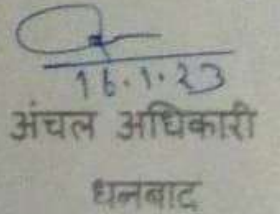 16.1.23
अंचल अधिकारी
धनबाद